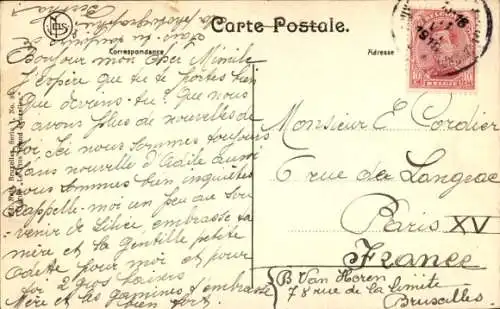 Carte Postale.
Correspondance
Adresse
Bonjour mon cher Mimile
J'espère que tu te portes bien
Que deviens-tu? que nous
n'avons plus de nouvelles de
toi. Ici nous sommes toujours
sans nouvelle d'Adile aussi
nous sommes bien inquiètes
Rappelle-moi un peu au sou-
venir de Lilice, embrasse ta
mère et la gentille petite
Odette pour moi et pour
toi 2 gros baisers
Mère et les gamines t'embrasse
bien fort.
Monsieur E Cordier
6 rue de Langeac
Paris XV
France
B Van Horen
78 rue de la limite
Bruxelles.
BELGIQUE
BELGIË
10
10